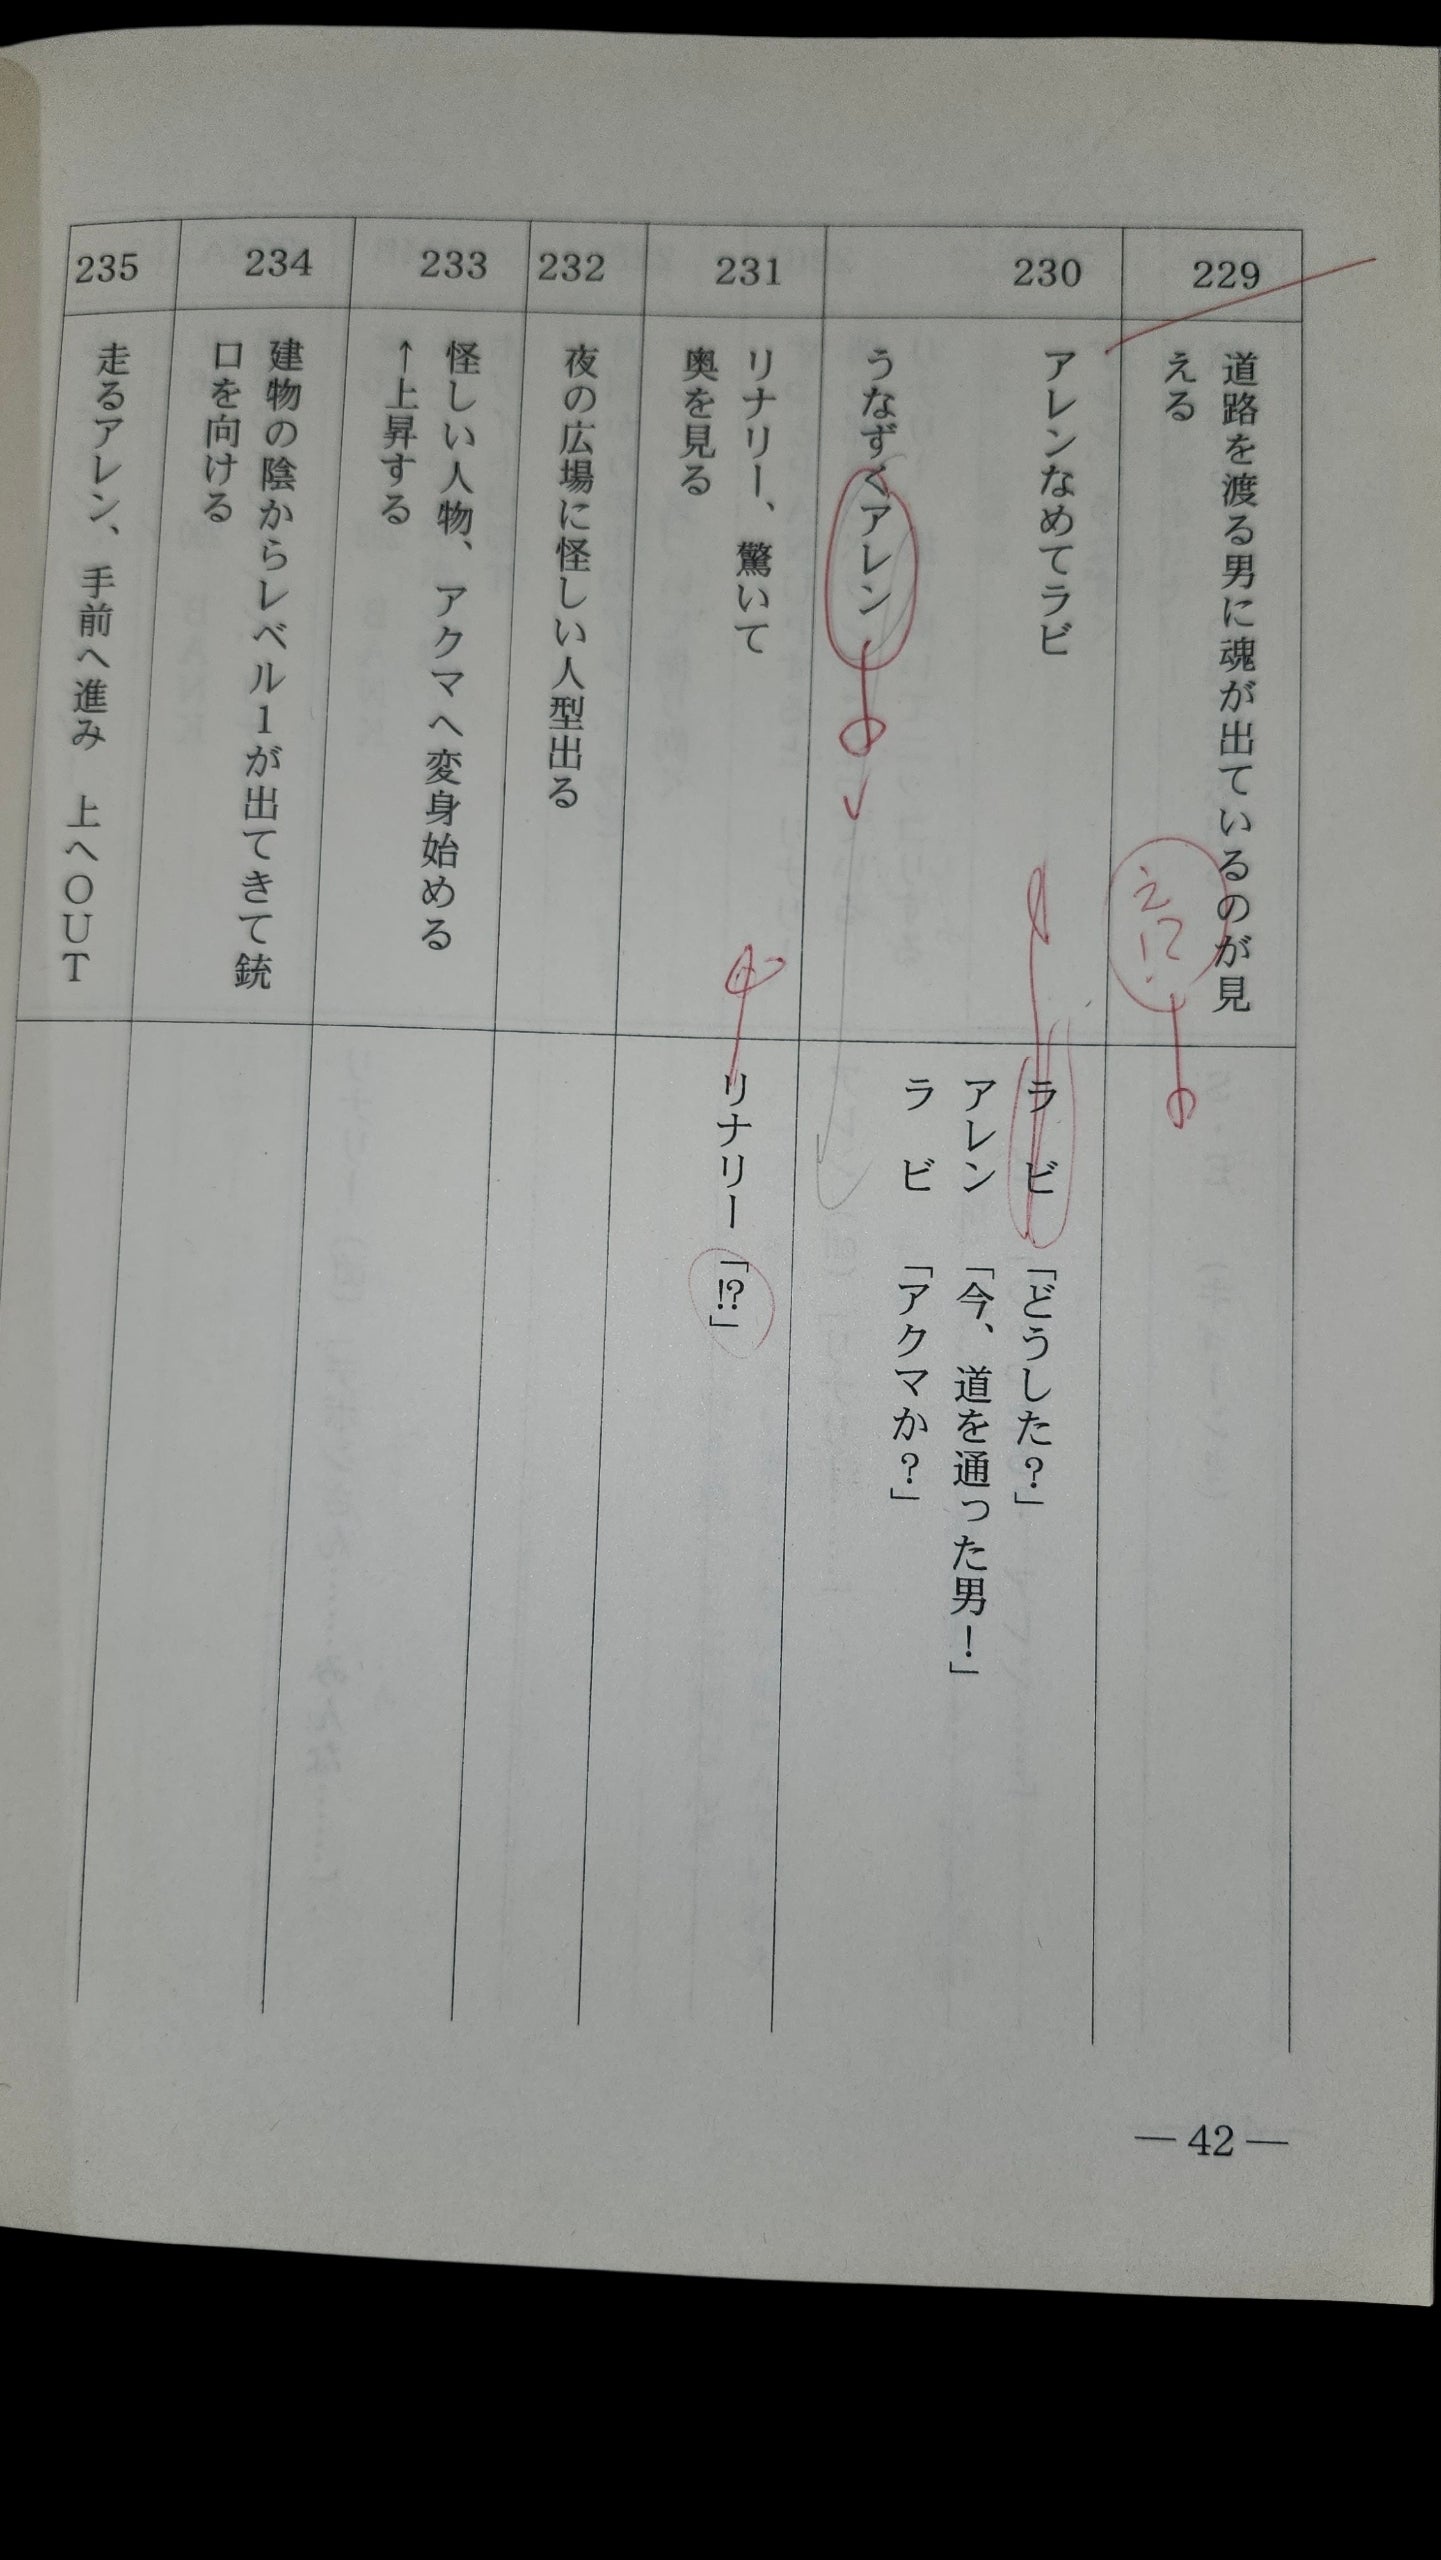 229
道路を渡る男に魂が出ているのが見
える
え!?
230
アレンなめてラビ
ラビ「どうした？」
アレン「今、道を通った男！」
ラビ「アクマか？」
うなずくアレン
231
リナリー、驚いて
奥を見る
リナリー「!?」
232
夜の広場に怪しい人型出る
233
怪しい人物、アクマへ変身始める
↑上昇する
234
建物の陰からレベル1が出てきて銃
口を向ける
235
走るアレン、手前へ進み 上へOUT
— 42 —